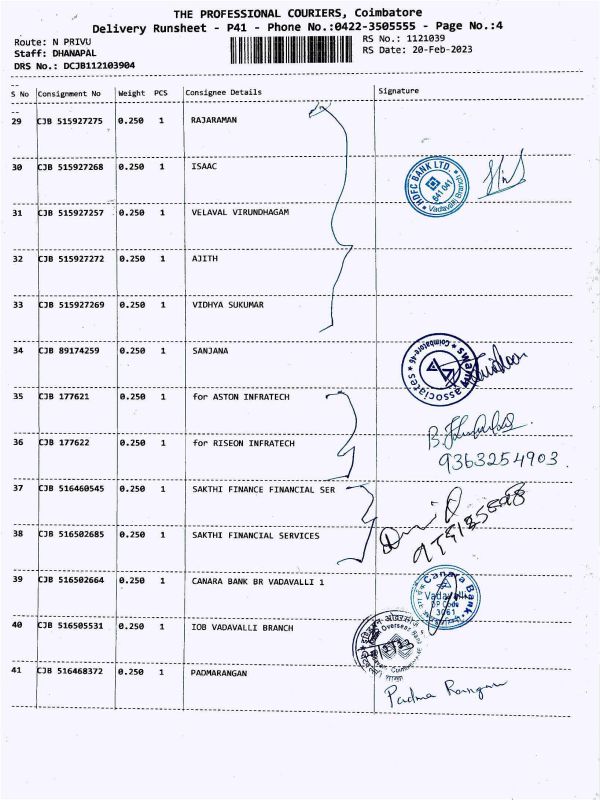 THE PROFESSIONAL COURIERS, Coimbatore
Delivery Runsheet - P41 - Phone No.:0422-3505555 - Page No.:4
Route: N PRIVU
RS No.: 1121039
Staff: DHANAPAL
RS Date: 20-Feb-2023
DRS No.: DCJB112103904
S No Consignment No Weight PCS Consignee Details Signature
29 CJB 515927275 0.250 1 RAJARAMAN
30 CJB 515927268 0.250 1 ISAAC
HDFC BANK LTD.
641 041
* Vadavalli Branch *
31 CJB 515927257 0.250 1 VELAVAL VIRUNDHAGAM
32 CJB 515927272 0.250 1 AJITH
33 CJB 515927269 0.250 1 VIDHYA SUKUMAR
34 CJB 89174259 0.250 1 SANJANA
associates * Coimbatore-46 *
35 CJB 177621 0.250 1 for ASTON INFRATECH
36 CJB 177622 0.250 1 for RISEON INFRATECH
9363254903
37 CJB 516460545 0.250 1 SAKTHI FINANCE FINANCIAL SER
38 CJB 516502685 0.250 1 SAKTHI FINANCIAL SERVICES
39 CJB 516502664 0.250 1 CANARA BANK BR VADAVALLI 1
Canara Bank
Vadavalli
DP Code
3061
40 CJB 516505531 0.250 1 IOB VADAVALLI BRANCH
Overseas
41 CJB 516468372 0.250 1 PADMARANGAN
Padma Rangan